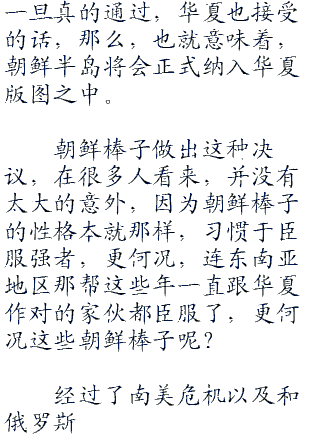 一旦真的通过，华夏也接受
的话，那么，也就意味着，
朝鲜半岛将会正式纳入华夏
版图之中。
朝鲜棒子做出这种决
议，在很多人看来，并没有
太大的意外，因为朝鲜棒子
的性格本就那样，习惯于臣
服强者，更何况，连东南亚
地区那帮这些年一直跟华夏
作对的家伙都臣服了，更何
况这些朝鲜棒子呢？
经过了南美危机以及和
俄罗斯